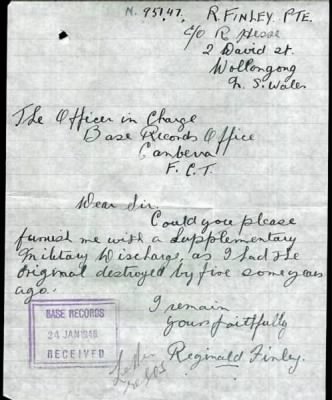 N. 95747. R. FINLEY. PTE.
C/o R Hesse
2 David st.
Wollongong
N. S. Wales
The Officer in Charge
Base Records Office
Canberra
F. C. T.
Dear Sir.
Could you please
furnish me with a Supplementary
Military Discharge, as I had the
Original destroyed by fire some years
ago.
I remain
Yours faithfully
Reginald Finley.
BASE RECORDS
24 JAN 1946
RECEIVED